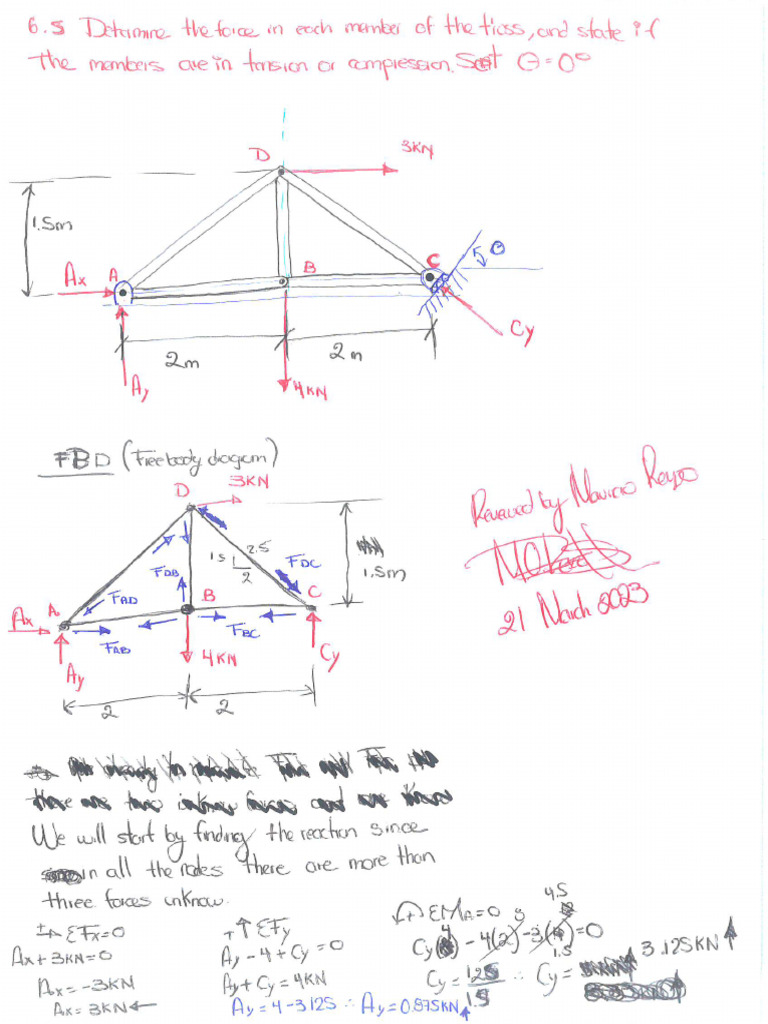 6.5 Determine the force in each member of the truss, and state if
The members are in tension or compression. Set θ=0°
D
3KN
1.5m
Ax
A
B
C
θ
Cy
2m
2m
Ay
4KN
FBD (Freebody diagram)
D
3KN
1.5
2.5
2
FDC
1.5m
FDB
FAD
B
C
Ax
A
FAB
FBC
4KN
Cy
Ay
2
2
Reviewed by Mauricio Reyes
21 March 2023
We will start by finding the reaction since
in all the nodes there are more than
three forces unknow.
ΣFx=0
Ax+3KN=0
Ax=-3KN
Ax=3KN←
+↑ΣFy
Ay-4+Cy=0
Ay+Cy=4KN
Ay=4-3.125 ∴ Ay=0.875KN↑
ΣMA=0
4.5
8
Cy(4)-4(2)-3( )=0
1.5
Cy= ∴ Cy= 3.125KN↑